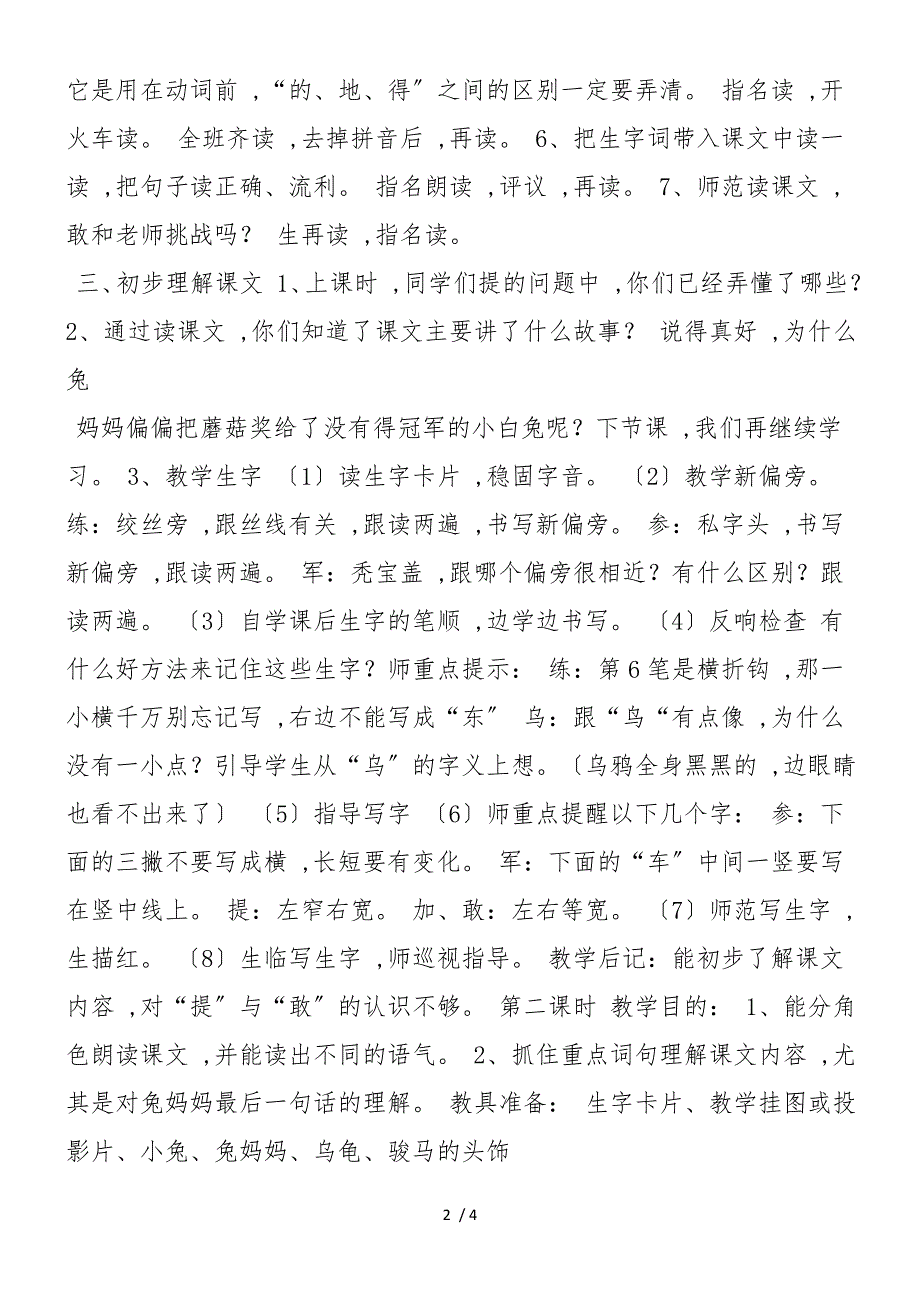 它是用在动词前 ,“的、地、得〞之间的区别一定要弄清。 指名读 ,开
火车读。 全班齐读 ,去掉拼音后 ,再读。 6、把生字词带入课文中读一
读 ,把句子读正确、流利。 指名朗读 ,评议 ,再读。 7、师范读课文 ,
敢和老师挑战吗? 生再读 ,指名读。
三、初步理解课文 1、上课时 ,同学们提的问题中 ,你们已经弄懂了哪些?
2、通过读课文 ,你们知道了课文主要讲了什么故事? 说得真好 ,为什么
兔
妈妈偏偏把蘑菇奖给了没有得冠军的小白兔呢? 下节课 ,我们再继续学
习。 3、教学生字 〔1〕读生字卡片 ,稳固字音。 〔2〕教学新偏旁。
练: 绞丝旁 ,跟丝线有关 ,跟读两遍 ,书写新偏旁。 参: 私字头 ,书写
新偏旁 ,跟读两遍。 军: 秃宝盖 ,跟哪个偏旁很相近? 有什么区别? 跟
读两遍。 〔3〕自学课后生字的笔顺 ,边学边书写。 〔4〕反响检查 有
什么好方法来记住这些生字? 师重点提示: 练: 第6笔是横折钩 ,那一
小横千万别忘记写 ,右边不能写成“东〞 乌: 跟“鸟“有点像 ,为什么
没有一小点? 引导学生从“乌〞的字义上想。〔乌鸦全身黑黑的 ,边眼睛
也看不出来了〕 〔5〕指导写字 〔6〕师重点提醒以下几个字: 参: 下
面的三撇不要写成横 ,长短要有变化。 军: 下面的“车〞中间一竖要写
在竖中线上。 提: 左窄右宽。 加、敢: 左右等宽。 〔7〕师范写生字 ,
生描红。 〔8〕生临写生字 ,师巡视指导。 教学后记: 能初步了解课文
内容 ,对“提〞与“敢〞的认识不够。 第二课时 教学目的: 1、能分角
色朗读课文 ,并能读出不同的语气。 2、抓住重点词句理解课文内容 ,尤
其是对兔妈妈最后一句话的理解。 教具准备: 生字卡片、教学挂图或投
影片、小兔、兔妈妈、乌龟、骏马的头饰
2 / 4